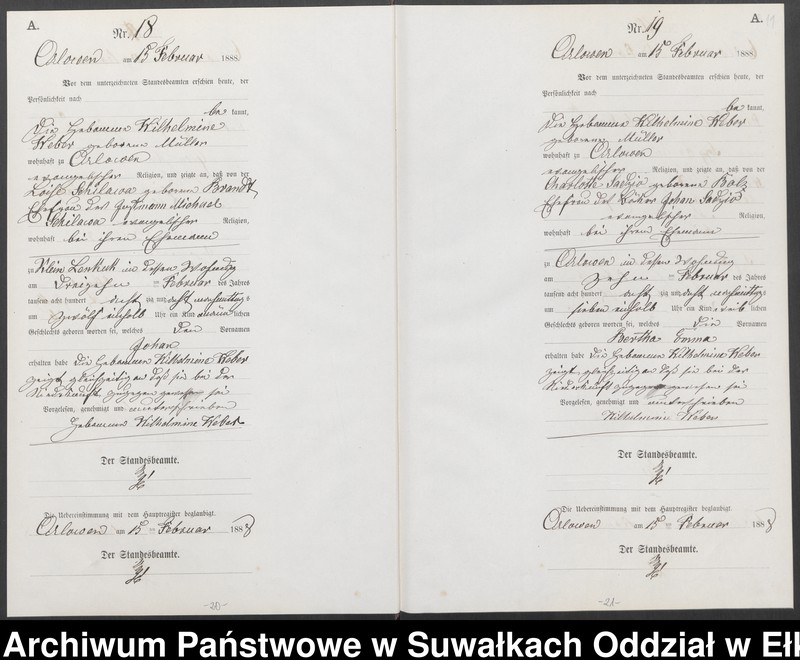 A.
Nr. 18
Orlowen am 15 Februar 1888
Vor dem unterzeichneten Standesbeamten erschien heute, der
Persönlichkeit nach
be kannt,
die Hebamme Wilhelmine
Weber geborene Müller
wohnhaft zu Orlowen
evangelischer Religion, und zeigte an, daß von der
geborene Brandt,
Ehefrau des Michael
evangelischer Religion,
wohnhaft bei ihrem Ehemann
zu Klein Lenkuk in dessen Wohnung
am dreizehn ten Februar des Jahres
tausend acht hundert acht zig und acht nachmittags
um zwölf einhalb Uhr ein Kind männlichen
Geschlechts geboren worden sei, welches den Vornamen
Johan
erhalten habe die Hebamme Wilhelmine Weber
zeigt gleichzeitig an daß sie bei der
Niederkunft zugegen gewesen sei
Vorgelesen, genehmigt und unterschrieben
Hebamme Wilhelmine Weber
Der Standesbeamte.
Die Uebereinstimmung mit dem Hauptregister beglaubigt.
Orlowen am 15 ten Februar 1888
Der Standesbeamte.
-20-
A.
Nr. 19
Orlowen am 15 Februar 1888
Vor dem unterzeichneten Standesbeamten erschien heute, der
Persönlichkeit nach
be kannt,
die Hebamme Wilhelmine Weber
geborene Müller
wohnhaft zu Orlowen
evangelischer Religion, und zeigte an, daß von der
Charlotte geborene
Ehefrau des Johan
evangelischer Religion,
wohnhaft bei ihrem Ehemann
zu Orlowen in dessen Wohnung
am zehn ten Februar des Jahres
tausend acht hundert acht zig und acht nachmittags
um sieben einhalb Uhr ein Kind weib lichen
Geschlechts geboren worden sei, welches die Vornamen
Bertha Emma
erhalten habe die Hebamme Wilhelmine Weber
zeigt gleichzeitig an daß sie bei der
Niederkunft zugegen gewesen sei
Vorgelesen, genehmigt und unterschrieben
Wilhelmine Weber
Der Standesbeamte.
Die Uebereinstimmung mit dem Hauptregister beglaubigt.
Orlowen am 15 ten Februar 1888
Der Standesbeamte.
-21-
Archiwum Państwowe w Suwałkach Oddział w Ełk